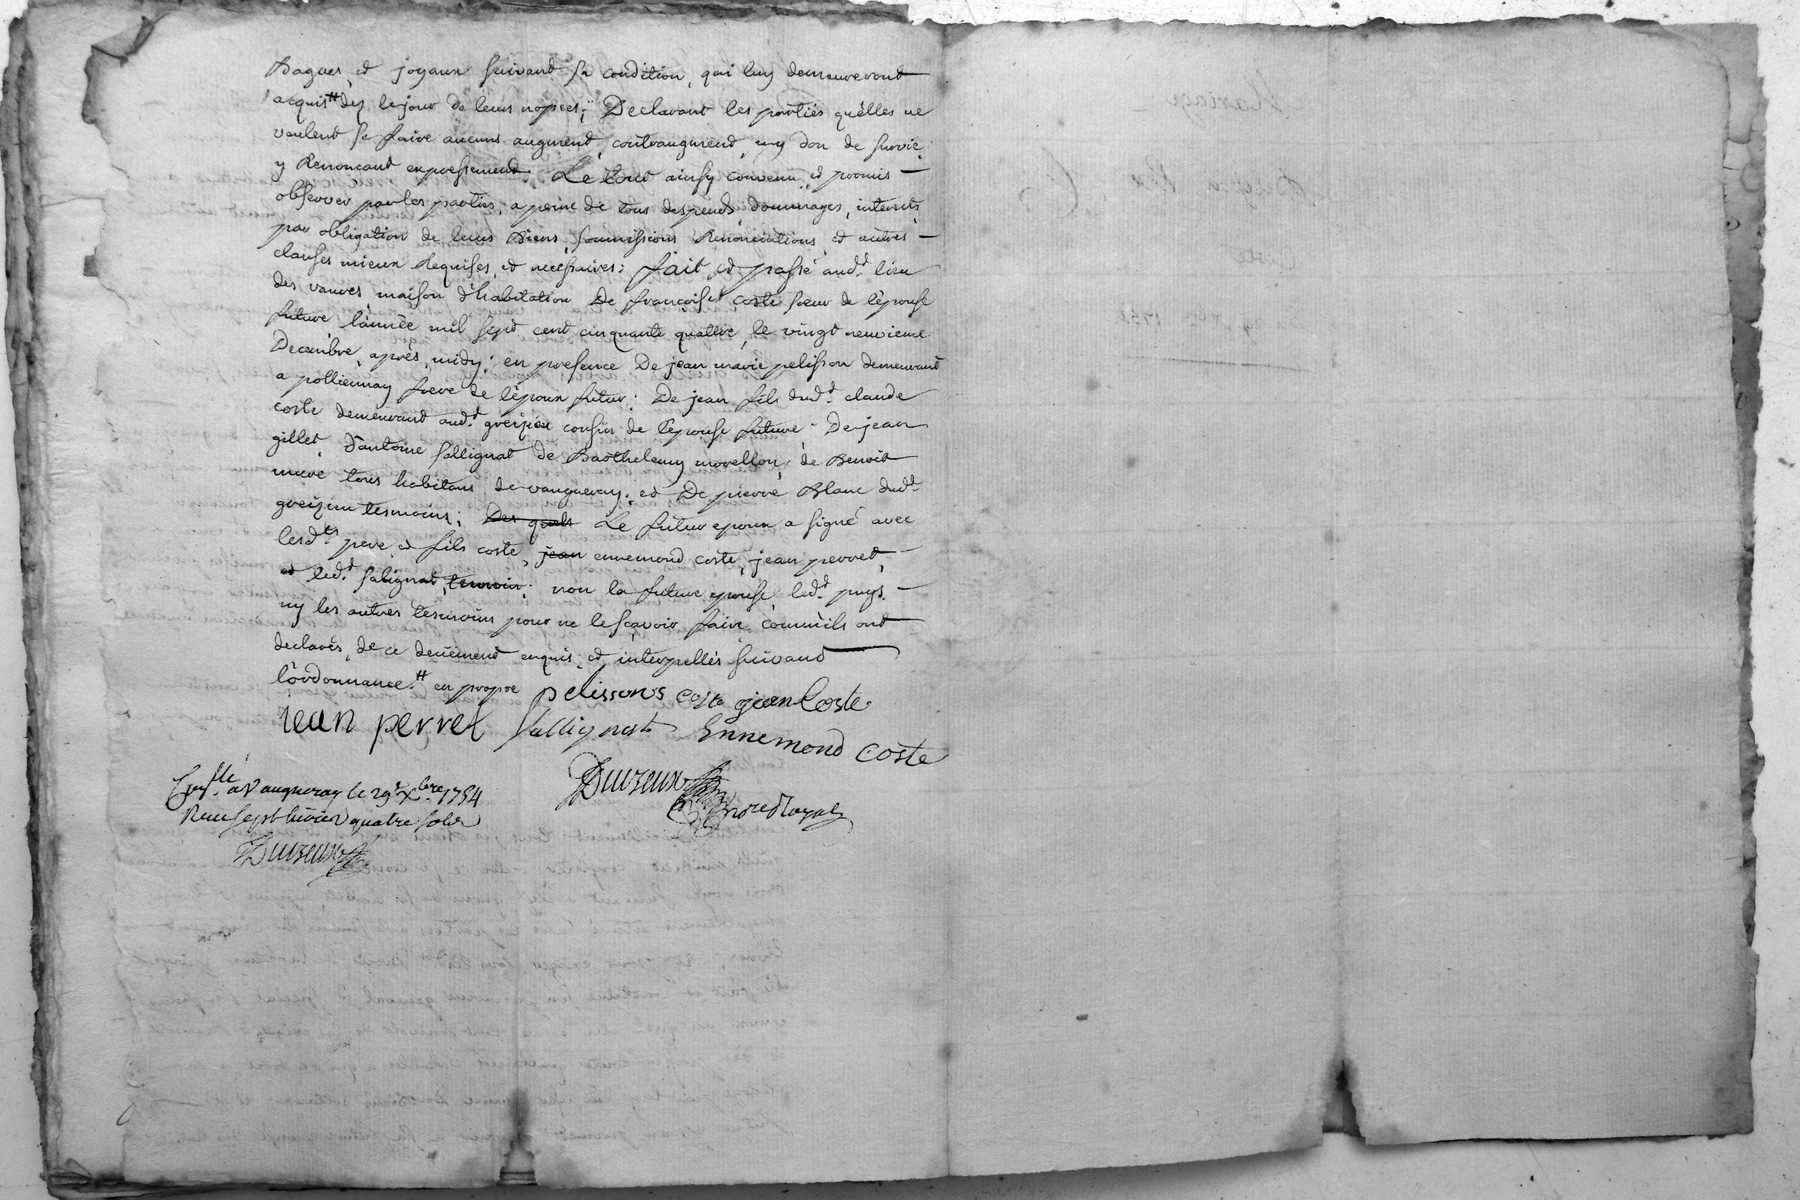 Bagues et joyaux suivant sa condition, qui luy demeureront
acquis # dez le jour de leurs nopces; Declarant les parties qu'elles ne
veulent se faire aucuns augment, contraugment, ny don de survie,
y Renonceant expressement. Le tout ainsy convenu, et promis —
observer par les parties, a peine de tous despends, dommages, interests,
par obligation de leurs Biens, soumissions Renonciations, et autres —
clauses mieux Requises, et necessaires: fait et passé aud.t lieu
des vanves, maison d'habitation De françoise coste sœur de l'epouse
future, l'année mil sept cent cinquante quattre, le vingt neuvieme
Decembre, après midy: en presence De jean marie pelisson demeurant
a pollionnay frere de l'epoux futur: De jean fils dud.t claude
coste demeurant aud.t greizieu cousin de l'epouse future: De jean
gillet, d'antoine sallignat de Barthelemy morellon, de Benoit
mure tous habitans de vaugneray; et De pierre Blanc dud.t
greizieu tesmoins; Des quels Le futur epoux a signé avec
lesd.ts pere et fils coste, jean ennemond coste, jean perret, —
et led.t salignat, temoin; non la future epouse, led.t puys —
ny les autres tesmoins pour ne le sçavoir faire comm'ils ont
declarés, de ce deüement enquis, et interpellés suivant
l'ordonnance. # en propre pelissons coste jean Coste
iean perret Sallignat Ennemond coste
Duvzeux
no.re Royal
Con.lle a Vaugneray le 29.e Xbre 1754
Reçu sept livres quatre sols
Duvzeux